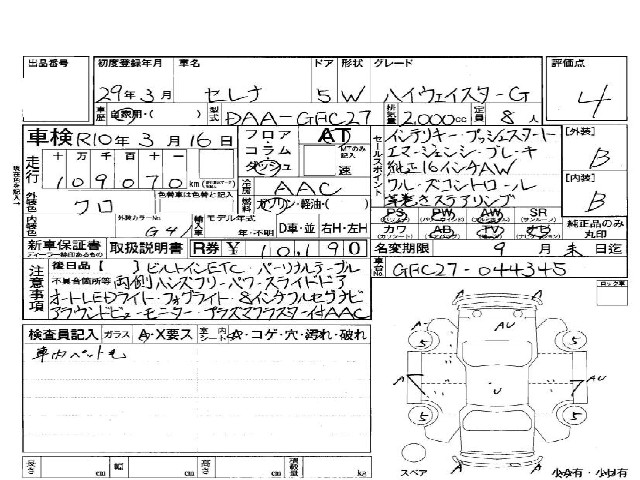 出品番号 初度登録年月 車名 ドア 形状 グレード 評価点
29年3月 セレナ 5 W ハイウェイスターG 4
車歴 自家用・( ) 型式 DAA-GFC27 排気量 2,000cc 定員 8人
車検 R10年3月16日 フロア コラム ダッシュ AT ATのみ記入 速
セールスポイント インテリキー・プッシュスタート
エマージェンシーブレーキ
純正16インチAW
クルーズコントロール
革巻きステアリング
[外装] B
[内装] B
走行 十 万 千 百 十 一
109070 km
冷房 AAC
外装色 クロ 色替車は色替と記入 燃料 ガソリン・軽油・( )
内装色 外装カラーNo. G41 輸入車 モデル年式 年・不明 D車・並 右H・左H
PS PW AW SR
カワ AB TV ナビ
純正品のみ丸印
新車保証書 取扱説明書 R券 ¥10,190 名変期限 9月末日迄
車台No. GFC27-044345
注意事項 後日品【 】ビルトインETC・パーソナルテーブル
不具合箇所等 両側ハンズフリーパワースライドドア
オートLEDライト・フォグライト・8インチフルセグナビ
アラウンドビューモニター・プラズマクラスター付AAC
ロック車
検査員記入 ガラス A・X要ス 室内シート A・コゲ・穴・汚れ・破れ
車内ペット毛
A A
AU
5 5
A U AU
5 5
A A
スペア
長さ cm 幅 cm 高さ cm 積載量 kg
小A有・小U有